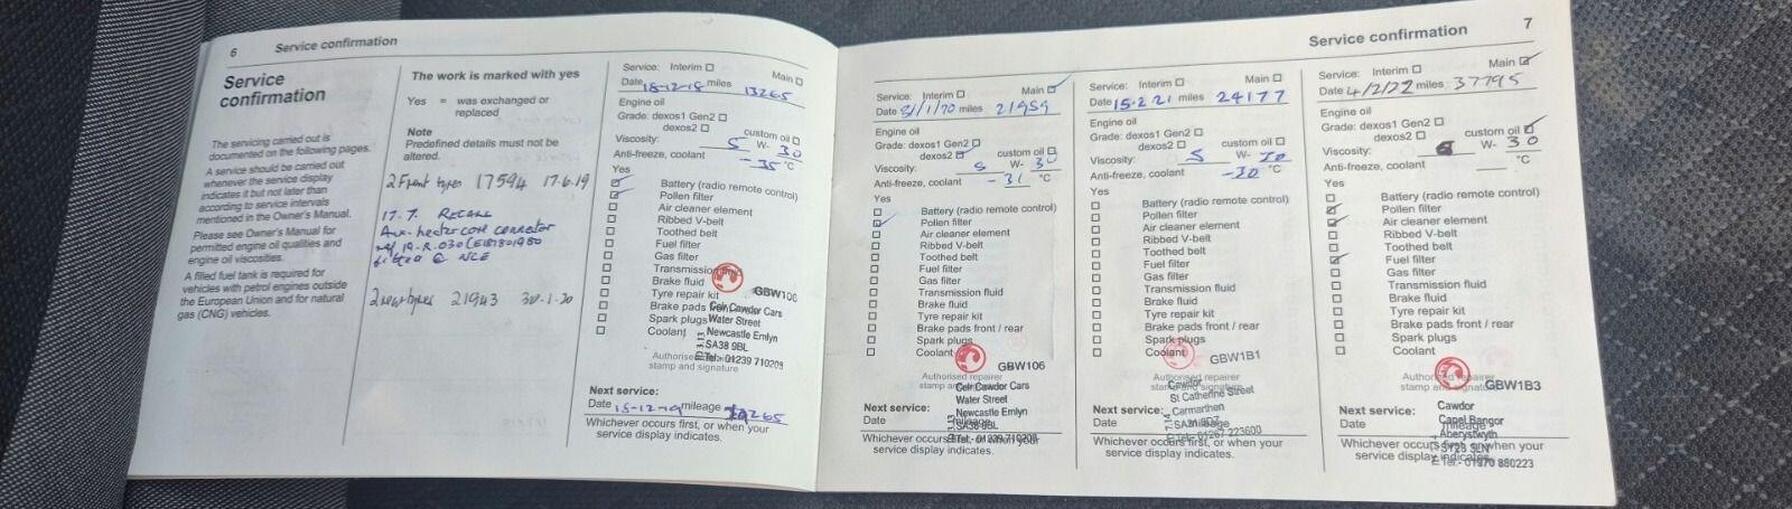 6 Service confirmation
Service
confirmation
The servicing carried out is
documented on the following pages.
A service should be carried out
whenever the service display
indicates it but not later than
according to service intervals
mentioned in the Owner's Manual.
Please see Owner's Manual for
permitted engine oil qualities and
engine oil viscosities.
A filled fuel tank is required for
vehicles with petrol engines outside
the European Union and for natural
gas (CNG) vehicles.
The work is marked with yes
Yes = was exchanged or
replaced
Note
Predefined details must not be
altered.
2 Front tyres 17594 17.6.19
17.7. RECALL
Aux-heater core connector
fitted @ NCE
2 rear tyres 21943 30-1-20
Service: Interim Main
Date 18-12-18 miles 13265
Engine oil
Grade: dexos1 Gen2
dexos2 custom oil
Viscosity: 5 W- 30
Anti-freeze, coolant -35 °C
Yes
Battery (radio remote control)
Pollen filter
Air cleaner element
Ribbed V-belt
Toothed belt
Fuel filter
Gas filter
Transmission
Brake fluid
Tyre repair kit
Brake pads
Spark plugs
Coolant
GBW106
Ceir Cawdor Cars
Water Street
Newcastle Emlyn
SA38 9BL
Tel:- 01239 710209
Authorised
stamp and signature
Next service:
Date 15-12-19 mileage
Whichever occurs first, or when your
service display indicates.
Service confirmation 7
Service: Interim Main
Date miles 21959
Engine oil
Grade: dexos1 Gen2
dexos2 custom oil
Viscosity: 5 W- 30
Anti-freeze, coolant -31 °C
Yes
Battery (radio remote control)
Pollen filter
Air cleaner element
Ribbed V-belt
Toothed belt
Fuel filter
Gas filter
Transmission fluid
Brake fluid
Tyre repair kit
Brake pads front / rear
Spark plugs
Coolant
GBW106
Authorised repairer
Ceir Cawdor Cars
Water Street
Newcastle Emlyn
SA38 9BL
Tel:- 01239 710209
Next service:
Date
Whichever occurs first, or when your
service display indicates.
Service: Interim Main
Date 15.2.21 miles 24177
Engine oil
Grade: dexos1 Gen2
dexos2 custom oil
Viscosity: 5 W-
Anti-freeze, coolant -30 °C
Yes
Battery (radio remote control)
Pollen filter
Air cleaner element
Ribbed V-belt
Toothed belt
Fuel filter
Gas filter
Transmission fluid
Brake fluid
Tyre repair kit
Brake pads front / rear
Spark plugs
Coolant
GBW1B1
Authorised repairer
Cawdor
St Catherine Street
Carmarthen
Tel:- 01267 223600
Next service:
Date
Whichever occurs first, or when your
service display indicates.
Service: Interim Main
Date 4/2/22 miles 37795
Engine oil
Grade: dexos1 Gen2
dexos2 custom oil
Viscosity: W- 30
Anti-freeze, coolant °C
Yes
Battery (radio remote control)
Pollen filter
Air cleaner element
Ribbed V-belt
Toothed belt
Fuel filter
Gas filter
Transmission fluid
Brake fluid
Tyre repair kit
Brake pads front / rear
Spark plugs
Coolant
GBW1B3
Cawdor
Capel Bangor
Aberystwyth
Tel:- 01970 880223
Next service:
Date
Whichever occurs first, or when your
service display indicates.